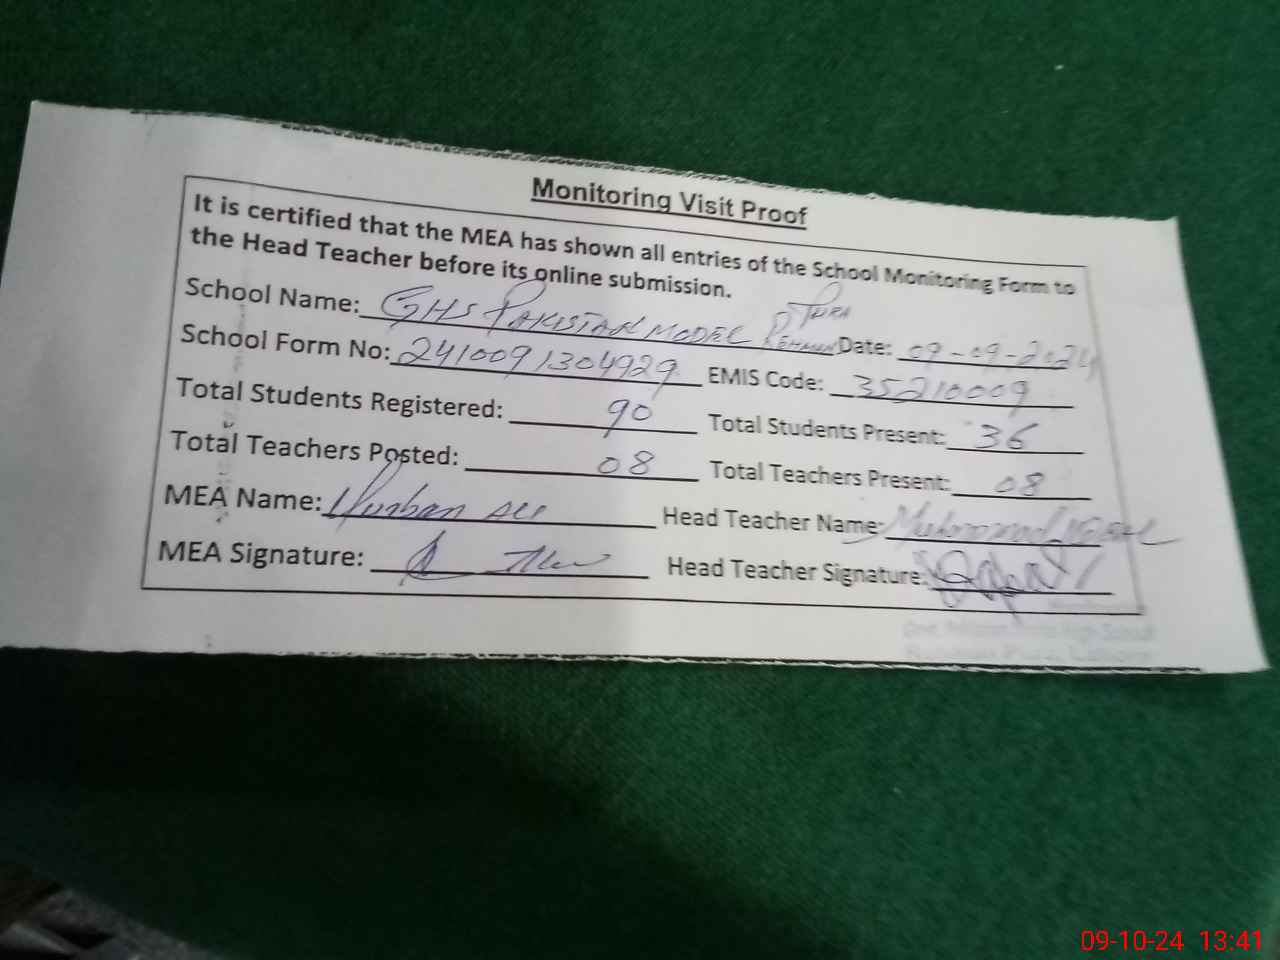 Monitoring Visit Proof
It is certified that the MEA has shown all entries of the School Monitoring Form to
the Head Teacher before its online submission.
School Name: GHS PAKISTAN MODEL REHMAN PURA Date: 09-09-2024
School Form No: 2410091304929 EMIS Code: 35210009
Total Students Registered: 90 Total Students Present: 36
Total Teachers Posted: 08 Total Teachers Present: 08
MEA Name: Qurban Ali Head Teacher Name: Muhammad
MEA Signature: Head Teacher Signature:
09-10-24 13:41